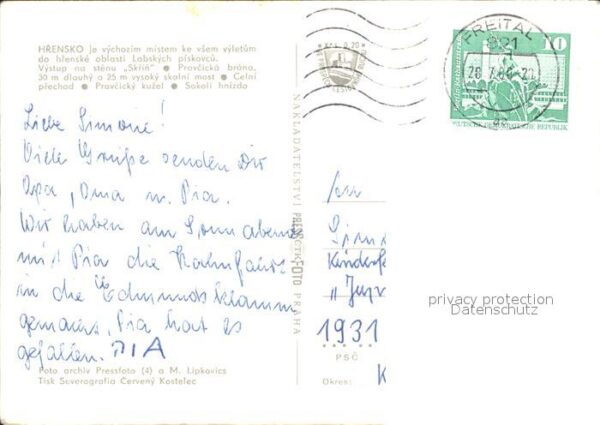 HŘENSKO je výchozím místem ke všem výletům
do hlenské oblasti Labských pískovců.
Výstup na stěnu „Skříň" ● Pravčická brána,
30 m dlouhý a 25 m vysoký skalní most ● Čelní
přechod ● Pravčický kužel ● Sokolí hnízdo
Liebe Simone!
Viele Grüße senden Dir
Opa, Oma u. Pia.
Wir haben am Sonnabend
mit Pia die Kahnfahrt
in die Edmundsklamm
gemacht. Pia hat es
gefallen. PIA
Foto archiv Pressfoto (4) a M. Lipkovics
Tisk Severografia Červený Kostelec
NAKLADATELSTVÍ PRESSFOTO PRAHA
FREITAL
821
10
DEUTSCHE DEMOKRATISCHE REPUBLIK
an
Sim
Kinder
1931
PSČ
Okres: K
privacy protection
Datenschutz